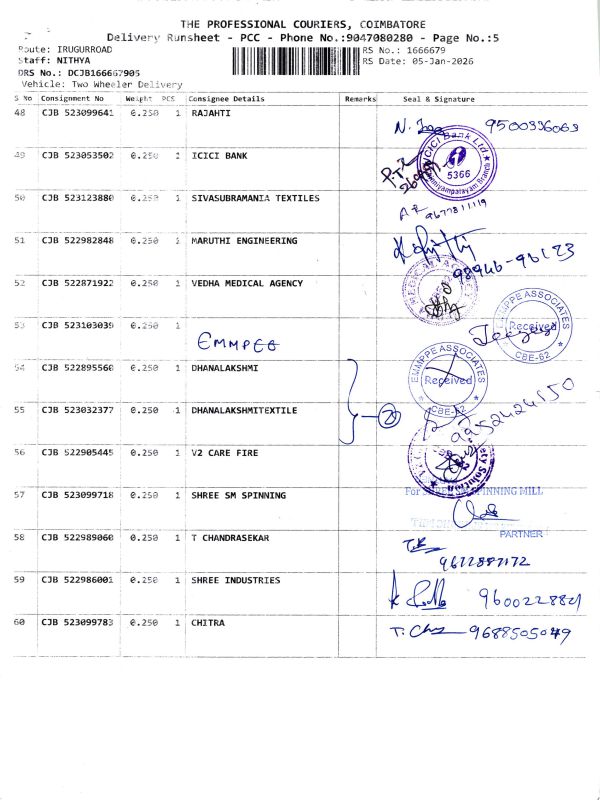 THE PROFESSIONAL COURIERS, COIMBATORE
Delivery Runsheet - PCC - Phone No.:9047080280 - Page No.:5
Route: IRUGURROAD RS No.: 1666679
Staff: NITHYA RS Date: 05-Jan-2026
DRS No.: DCJB166667905
Vehicle: Two Wheeler Delivery
S No Consignment No Weight PCS Consignee Details Remarks Seal & Signature
48 CJB 523099641 0.250 1 RAJAHTI 9500336063
49 CJB 523053502 0.250 1 ICICI BANK ICICI Bank Ltd 5366
50 CJB 523123880 0.250 1 SIVASUBRAMANIA TEXTILES AR 9677811119
51 CJB 522982848 0.250 1 MARUTHI ENGINEERING 98946-96123
52 CJB 522871922 0.250 1 VEDHA MEDICAL AGENCY
53 CJB 523103039 0.250 1 EMMPEE EMMPPE ASSOCIATES Received CBE-62
54 CJB 522895560 0.250 1 DHANALAKSHMI EMMPPE ASSOCIATES Received CBE-62
55 CJB 523032377 0.250 1 DHANALAKSHMITEXTILE 2 9952424550
56 CJB 522905445 0.250 1 V2 CARE FIRE
57 CJB 523099718 0.250 1 SHREE SM SPINNING For SHREE SM SPINNING MILL
PARTNER
58 CJB 522989060 0.250 1 T CHANDRASEKAR 9677887172
59 CJB 522986001 0.250 1 SHREE INDUSTRIES 9600228821
60 CJB 523099783 0.250 1 CHITRA 9688505049